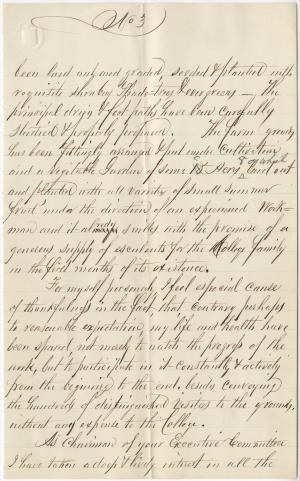 No 3
been laid out and graded, seeded & planted with
requisite shrubery Shade-trees & evergreens — The
principal drives & foot paths have been carefully
studied & properly prepared. The farm ground
has been fittingly arranged & put under cultivation
and a vegetable Garden of some Acres 8 of which laid out
and planted with all variety of small summer
fruit under the direction of an experienced Work-
man and it already smiles with the promise of a
generous supply of esculents for the College family
in the first months of its existence.
For myself personally I feel especial cause
of thankfulness in the fact that contrary perhaps
to reasonable expectation my life and health have
been spared not merely to watch the progress of the
work, but to participate in it constantly & actively
from the beginning to the end. besides conveying
the hundreds of distinguished visitors to the grounds
without any expense to the College.
As Chairman of your Executive Committee
I have taken a deep & lively interest in all the